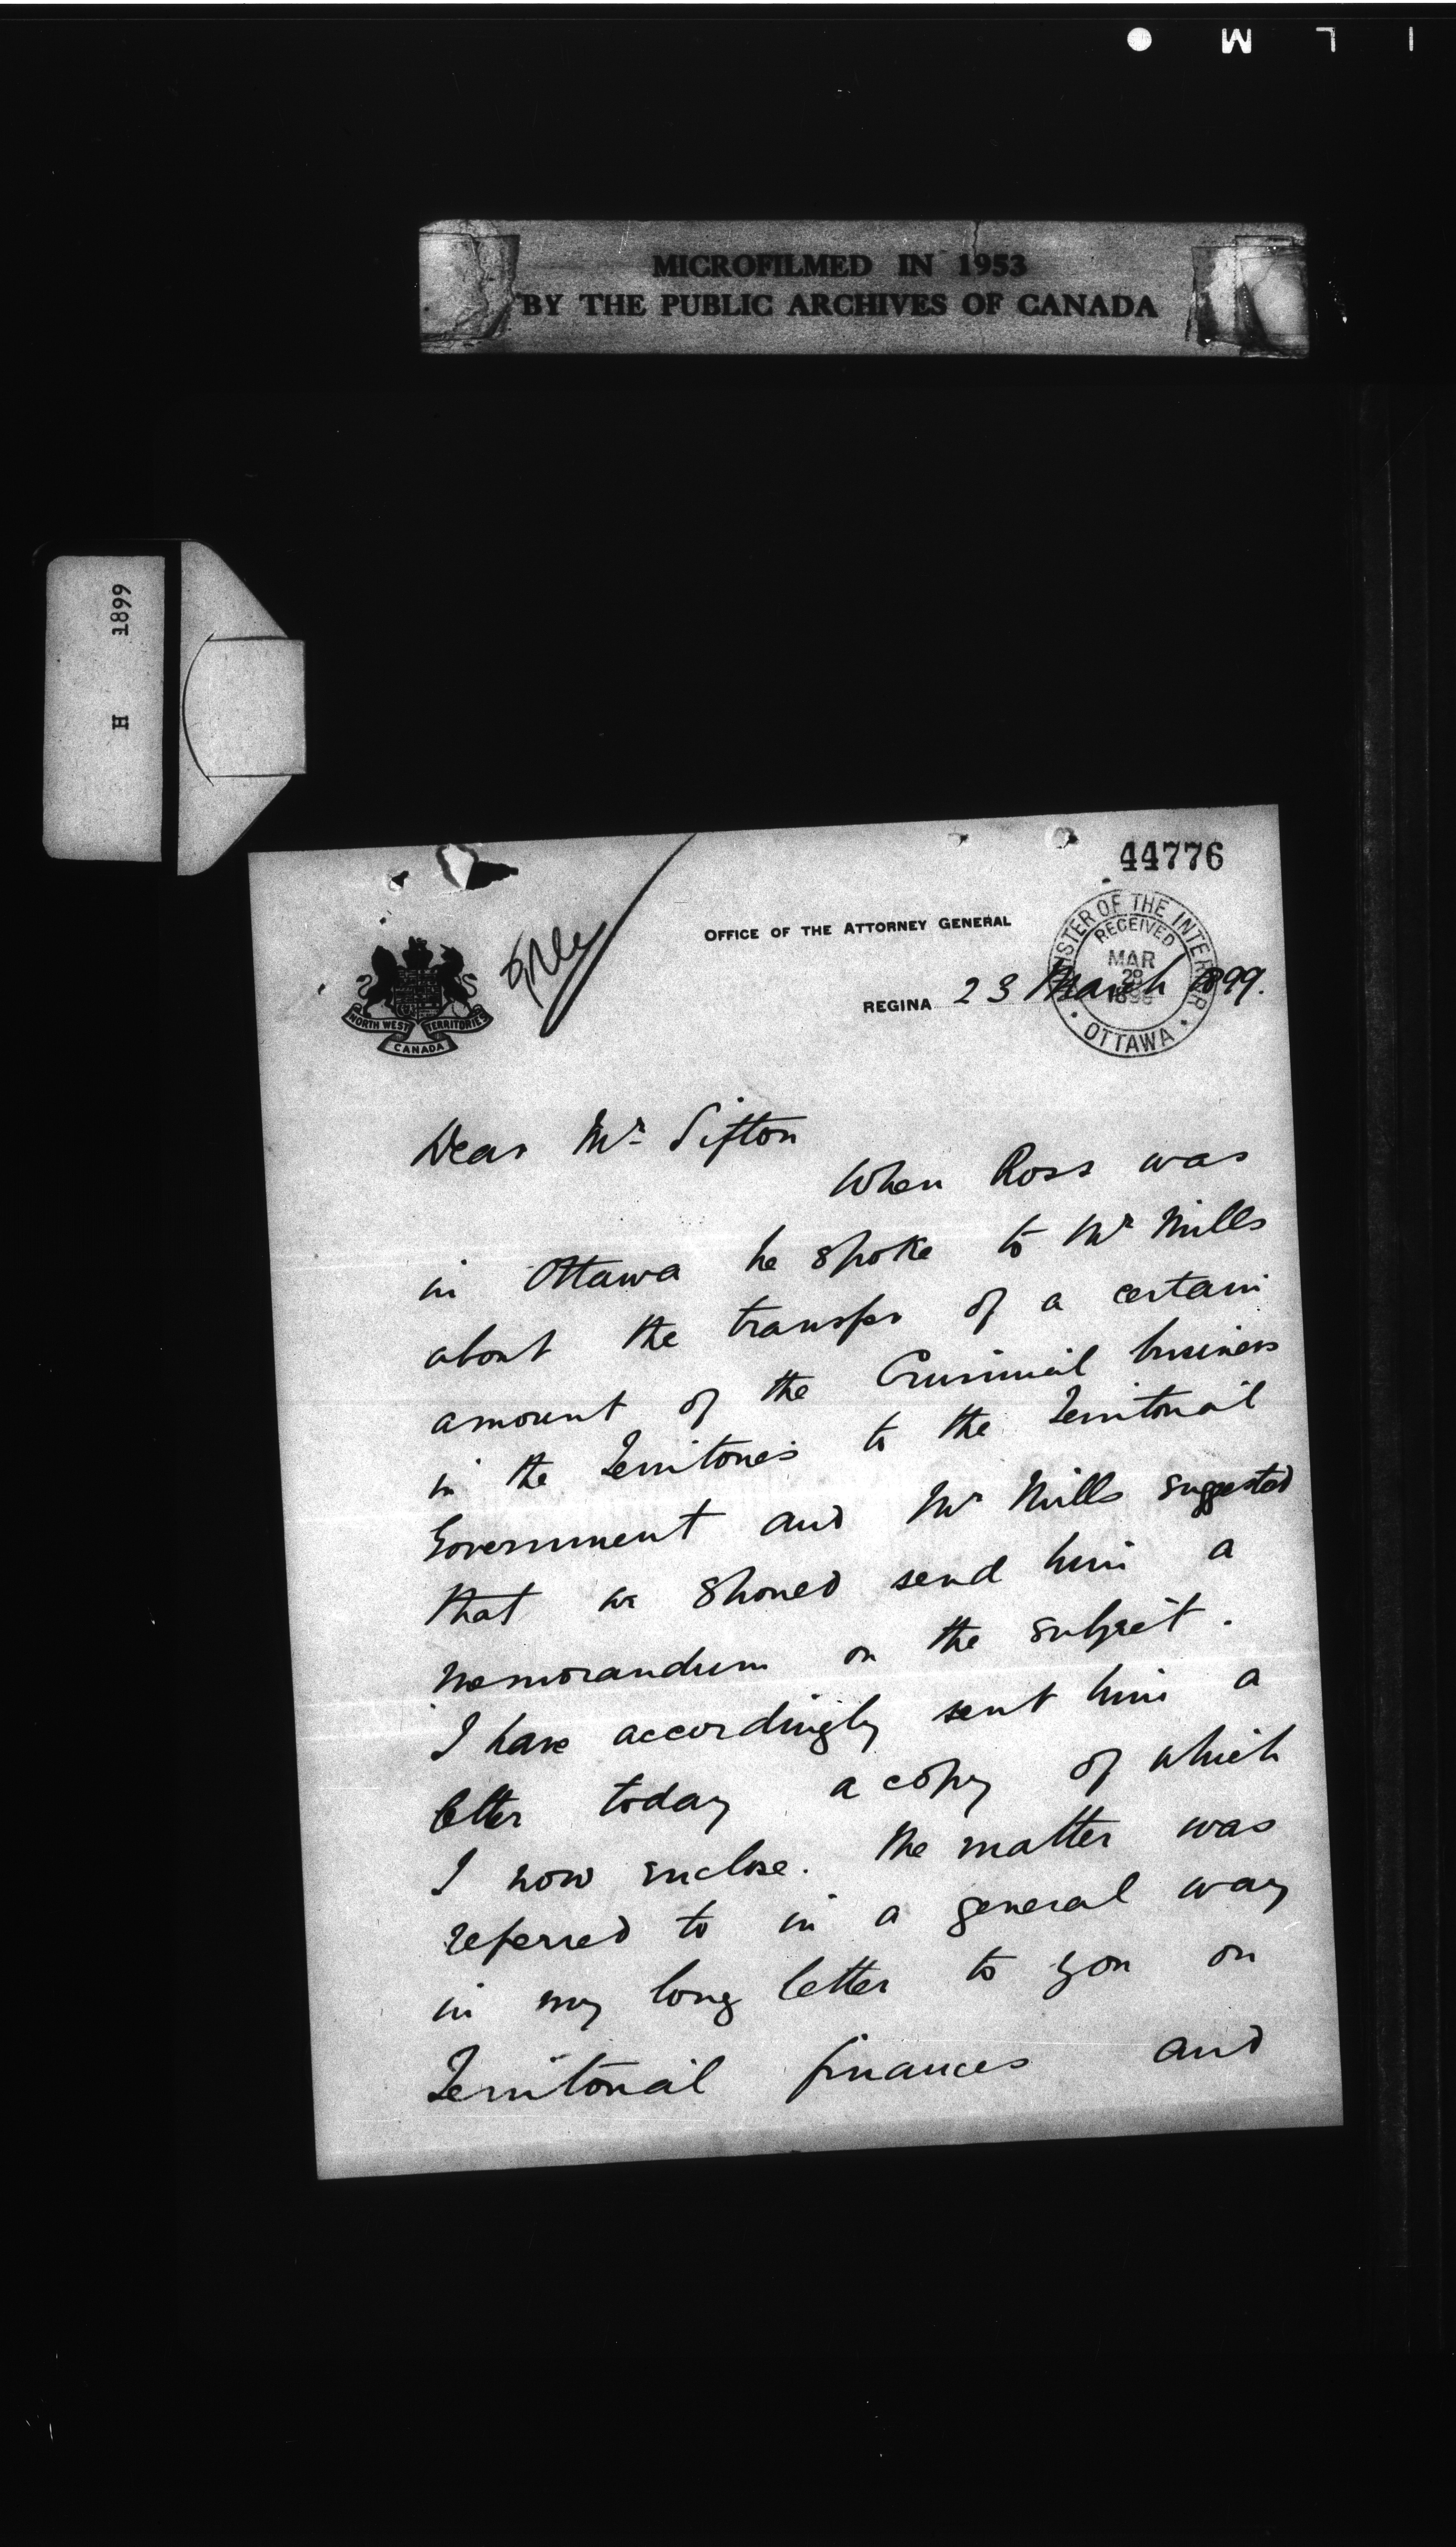 MICROFILMED IN 1953
BY THE PUBLIC ARCHIVES OF CANADA
H 1899
44776
OFFICE OF THE ATTORNEY GENERAL
MINISTER OF THE INTERIOR
RECEIVED
MAR
28
OTTAWA
NORTH WEST TERRITORIES
CANADA
REGINA 23 March 1899.
Dear Mr Sifton
When Ross was
in Ottawa he spoke to Mr Mills
about the transfer of a certain
amount of the Criminal business
in the Territories to the Territorial
Government and Mr Mills suggested
that we should send him a
memorandum on the subject.
I have accordingly sent him a
letter today a copy of which
I now enclose. The matter was
referred to in a general way
in my long letter to you on
Territorial finances and